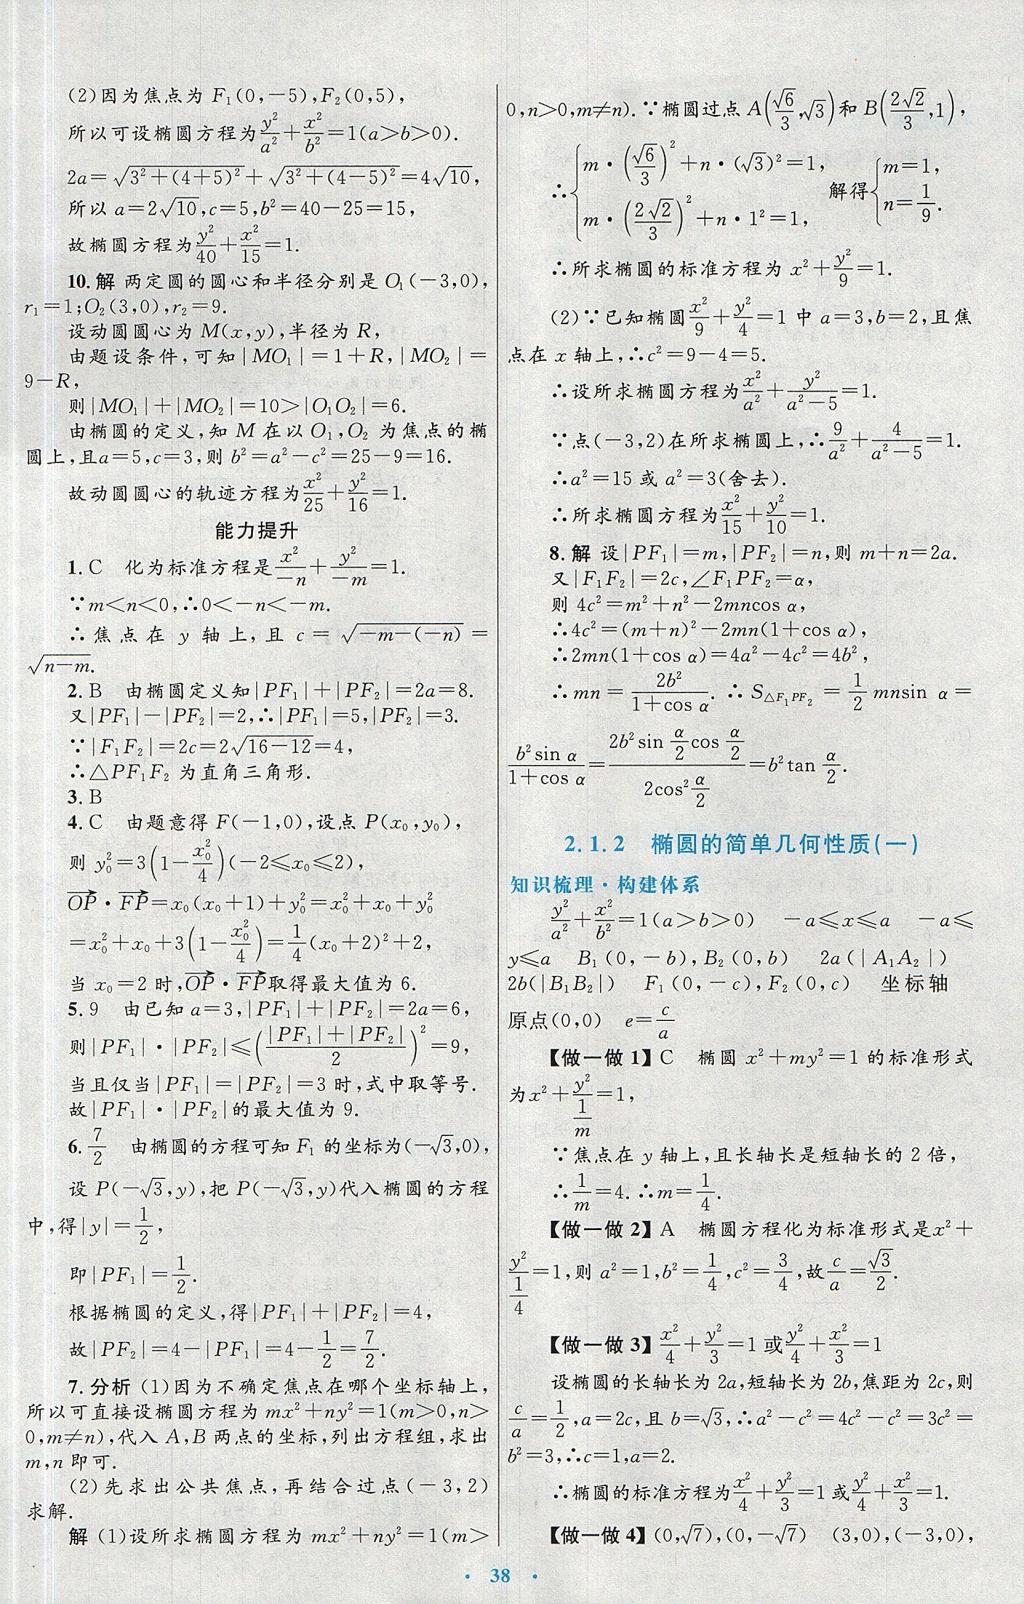 (2)因为焦点为 F₁(0,-5),F₂(0,5),
所以可设椭圆方程为y²/a²+x²/b²=1(a>b>0).
2a=√(3²+(4+5)²)+√(3²+(4-5)²)=4√10,
所以 a=2√10,c=5,b²=40-25=15,
故椭圆方程为y²/40+x²/15=1.
10.解 两定圆的圆心和半径分别是 O₁(-3,0),
r₁=1;O₂(3,0),r₂=9.
设动圆圆心为 M(x,y),半径为 R,
由题设条件,可知|MO₁|=1+R,|MO₂|=
9-R,
则|MO₁|+|MO₂|=10>|O₁O₂|=6.
由椭圆的定义,知 M 在以 O₁,O₂ 为焦点的椭
圆上,且a=5,c=3,则 b²=a²-c²=25-9=16.
故动圆圆心的轨迹方程为x²/25+y²/16=1.
能力提升
1.C 化为标准方程是x²/-n+y²/-m=1.
∵m<n<0,∴0<-n<-m.
∴焦点在 y 轴上,且 c=√(-m-(-n))=
√(n-m).
2.B 由椭圆定义知|PF₁|+|PF₂|=2a=8.
又|PF₁|-|PF₂|=2,∴|PF₁|=5,|PF₂|=3.
∵|F₁F₂|=2c=2√(16-12)=4,
∴△PF₁F₂ 为直角三角形.
3.B
4.C 由题意得 F(-1,0),设点 P(x₀,y₀),
则 y₀²=3(1-x₀²/4)(-2≤x₀≤2),
OP→·FP→=x₀(x₀+1)+y₀²=x₀²+x₀+y₀²
=x₀²+x₀+3(1-x₀²/4)=1/4(x₀+2)²+2,
当 x₀=2 时,OP→·FP→取得最大值为 6.
5.9 由已知 a=3,|PF₁|+|PF₂|=2a=6,
则|PF₁|·|PF₂|≤((|PF₁|+|PF₂|)/2)²=9,
当且仅当|PF₁|=|PF₂|=3 时,式中取等号.
故|PF₁|·|PF₂|的最大值为 9.
6.7/2 由椭圆的方程可知 F₁ 的坐标为(-√3,0),
设 P(-√3,y),把 P(-√3,y)代入椭圆的方程
中,得|y|=1/2,
即|PF₁|=1/2.
根据椭圆的定义,得|PF₁|+|PF₂|=4,
故|PF₂|=4-|PF₁|=4-1/2=7/2.
7.分析 (1)因为不确定焦点在哪个坐标轴上,
所以可直接设椭圆方程为 mx²+ny²=1(m>0,n>
0,m≠n),代入 A,B 两点的坐标,列出方程组,求出
m,n 即可.
(2)先求出公共焦点,再结合过点(-3,2)
求解.
解 (1)设所求椭圆方程为 mx²+ny²=1(m>
0,n>0,m≠n).∵椭圆过点 A(√6/3,√3)和 B(2√2/3,1),
∴{m·(√6/3)²+n·(√3)²=1, m·(2√2/3)²+n·1²=1, 解得{m=1, n=1/9.
∴所求椭圆的标准方程为 x²+y²/9=1.
(2)∵已知椭圆x²/9+y²/4=1 中 a=3,b=2,且焦
点在 x 轴上,∴c²=9-4=5.
∴设所求椭圆方程为x²/a²+y²/(a²-5)=1.
∵点(-3,2)在所求椭圆上,∴9/a²+4/(a²-5)=1.
∴a²=15 或 a²=3(舍去).
∴所求椭圆方程为x²/15+y²/10=1.
8.解 设|PF₁|=m,|PF₂|=n,则 m+n=2a.
又|F₁F₂|=2c,∠F₁PF₂=α,
则 4c²=m²+n²-2mncos α,
∴4c²=(m+n)²-2mn(1+cos α),
∴2mn(1+cos α)=4a²-4c²=4b²,
∴mn=2b²/(1+cos α). ∴S△F₁PF₂=1/2 mnsin α=
b²sin α/(1+cos α)=(2b²sin α/2 cos α/2)/(2cos² α/2)=b²tan α/2.
2.1.2 椭圆的简单几何性质(一)
知识梳理·构建体系
y²/a²+x²/b²=1(a>b>0) -a≤x≤a -a≤
y≤a B₁(0,-b),B₂(0,b) 2a(|A₁A₂|)
2b(|B₁B₂|) F₁(0,-c),F₂(0,c) 坐标轴
原点(0,0) e=c/a
【做一做 1】C 椭圆 x²+my²=1 的标准形式
为x²+y²/(1/m)=1,
∵焦点在 y 轴上,且长轴长是短轴长的 2 倍,
∴1/m=4.∴m=1/4.
【做一做 2】A 椭圆方程化为标准形式是x²+
y²/(1/4)=1,则 a²=1,b²=1/4,c²=3/4,故c/a=√3/2.
【做一做 3】x²/4+y²/3=1 或y²/4+x²/3=1
设椭圆的长轴长为 2a,短轴长为 2b,焦距为 2c,则
c/a=1/2,a=2c,且 b=√3,∴a²-c²=4c²-c²=3c²=
b²=3,∴c=1,a=2.
∴椭圆的标准方程为x²/4+y²/3=1 或y²/4+x²/3=1.
【做一做 4】(0,√7),(0,-√7) (3,0),(-3,0),
· 38 ·